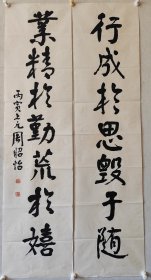 業精於勤荒於嬉
行成於思毀于随
丙寅上元周昭怡